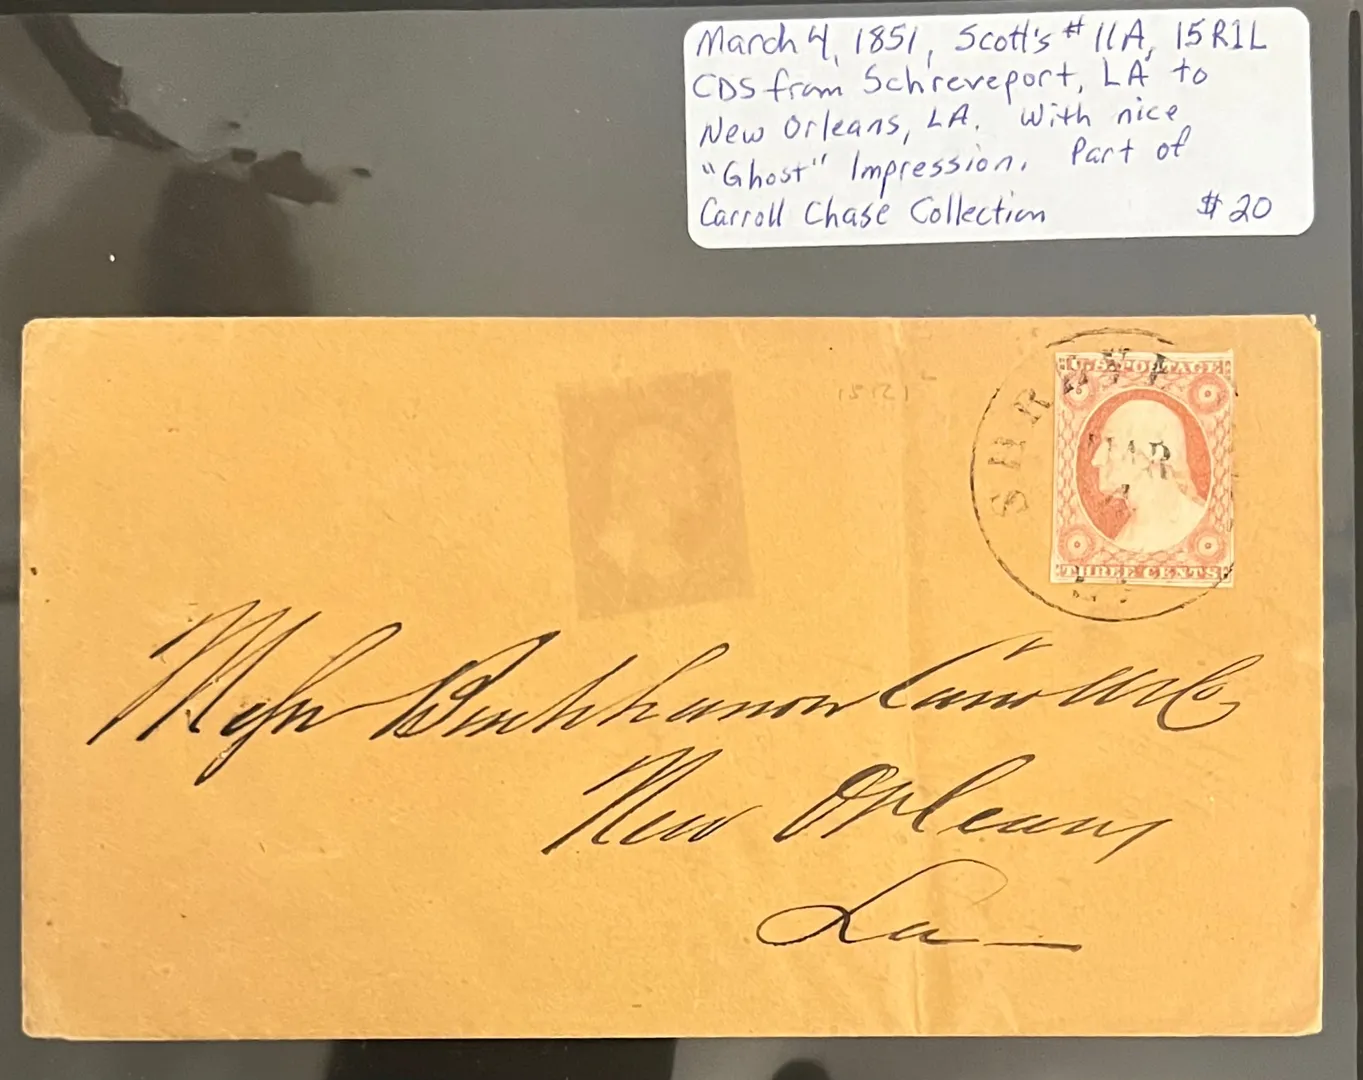 March 4, 1851, Scott's # 11A, 15R1L
CDS from Schreveport, LA to
New Orleans, LA. With nice
"Ghost" Impression. Part of
Carroll Chase Collection $20
15R1L
SHREVE
U.S. POSTAGE
MAR
THREE CENTS
New Orleans
La